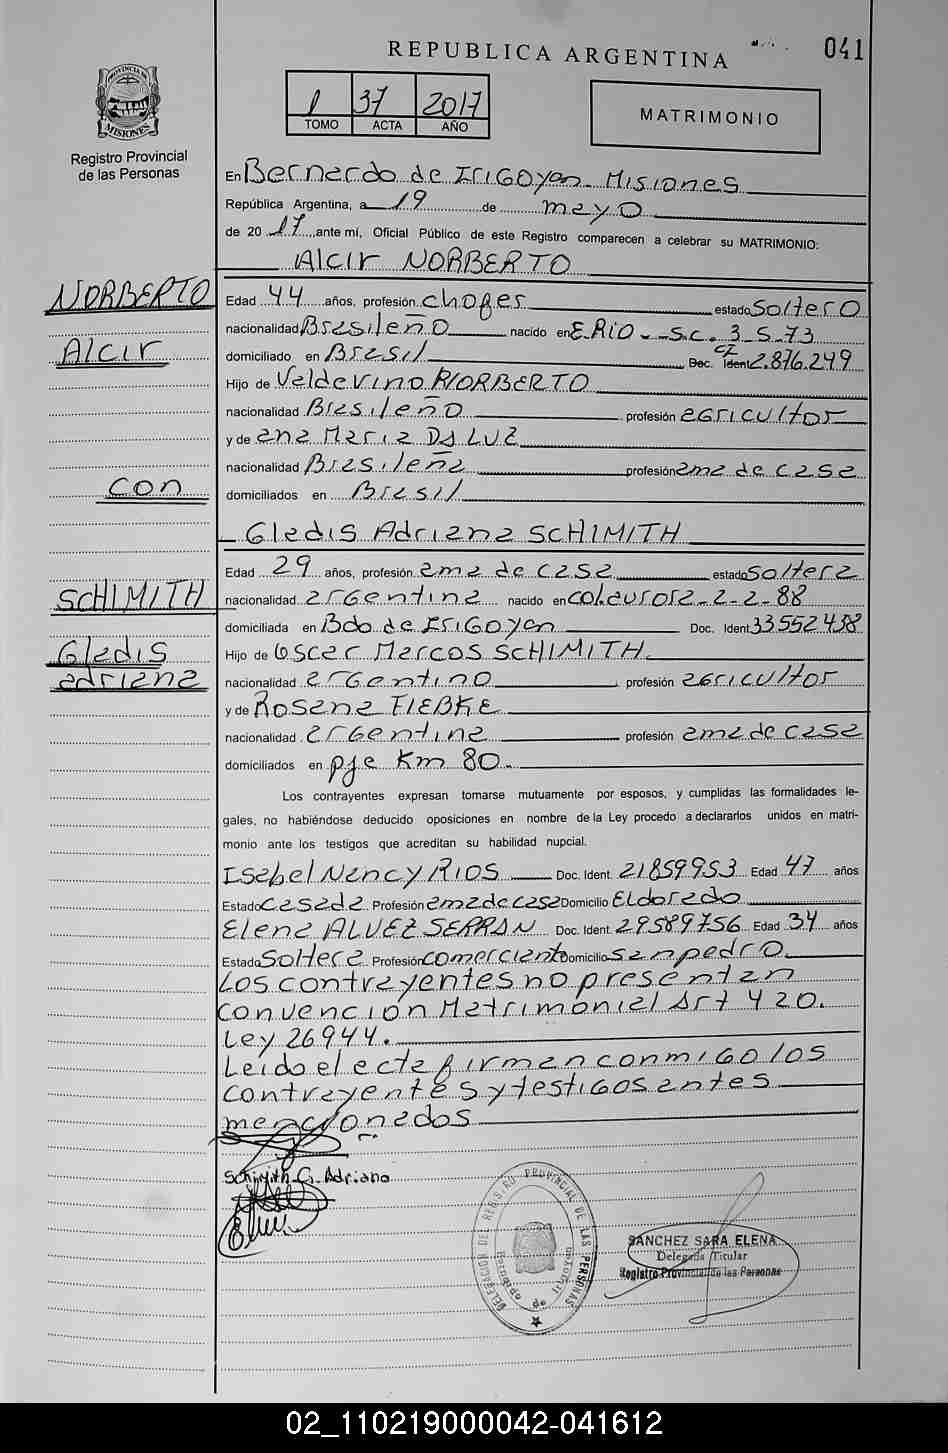 041
REPUBLICA ARGENTINA
1 37 2017
TOMO ACTA AÑO
MATRIMONIO
PROVINCIA DE MISIONES
Registro Provincial
de las Personas
En Bernardo de Irigoyen - Misiones
República Argentina, a 19 de mayo
de 20 17 ante mí, Oficial Público de este Registro comparecen a celebrar su MATRIMONIO:
Alcir NORBERTO
NORBERTO
Alcir
con
SCHIMITH
Gladis
adriana
Edad 44 años, profesión chofer estado soltero
nacionalidad Brasileño nacido en E.RIO - S.C. 3-5-73
domiciliado en Brasil Doc. Ident CI 2.876.249
Hijo de Valdevino NORBERTO
nacionalidad Brasileño profesión agricultor
y de ana Maria DA LUZ
nacionalidad Brasileña profesión ama de casa
domiciliados en Brasil
Gladis Adriana SCHIMITH
Edad 29 años, profesión ama de casa estado soltera
nacionalidad argentina nacido en col. aurora - 2-2-88
domiciliada en Bdo de Irigoyen Doc. Ident 33552438
Hijo de Oscar Marcos SCHIMITH
nacionalidad argentino profesión agricultor
y de Rosana FIEBKE
nacionalidad argentina profesión ama de casa
domiciliados en pje Km 80.
Los contrayentes expresan tomarse mutuamente por esposos, y cumplidas las formalidades le-
gales, no habiéndose deducido oposiciones en nombre de la Ley procedo a declararlos unidos en matri-
monio ante los testigos que acreditan su habilidad nupcial.
Isabel Nancy RIOS Doc. Ident. 21859953 Edad 47 años
Estado casada Profesión ama de casa Domicilio Eldorado
Elena ALVEZ SERRAN Doc. Ident. 29589756 Edad 34 años
Estado Soltera Profesión comerciante Domicilio san pedro
Los contrayentes no presentan
convencion Matrimonial Art 420.
Ley 26944.
Leido el acta firman conmigo los
contrayentes y testigos antes
mencionados
Schimith G. Adriana
DELEGACION DEL REGISTRO PROVINCIAL DE LAS PERSONAS
Bernardo de Irigoyen
SANCHEZ SARA ELENA
Delegada Titular
Registro Provincial de las Personas
02_110219000042-041612